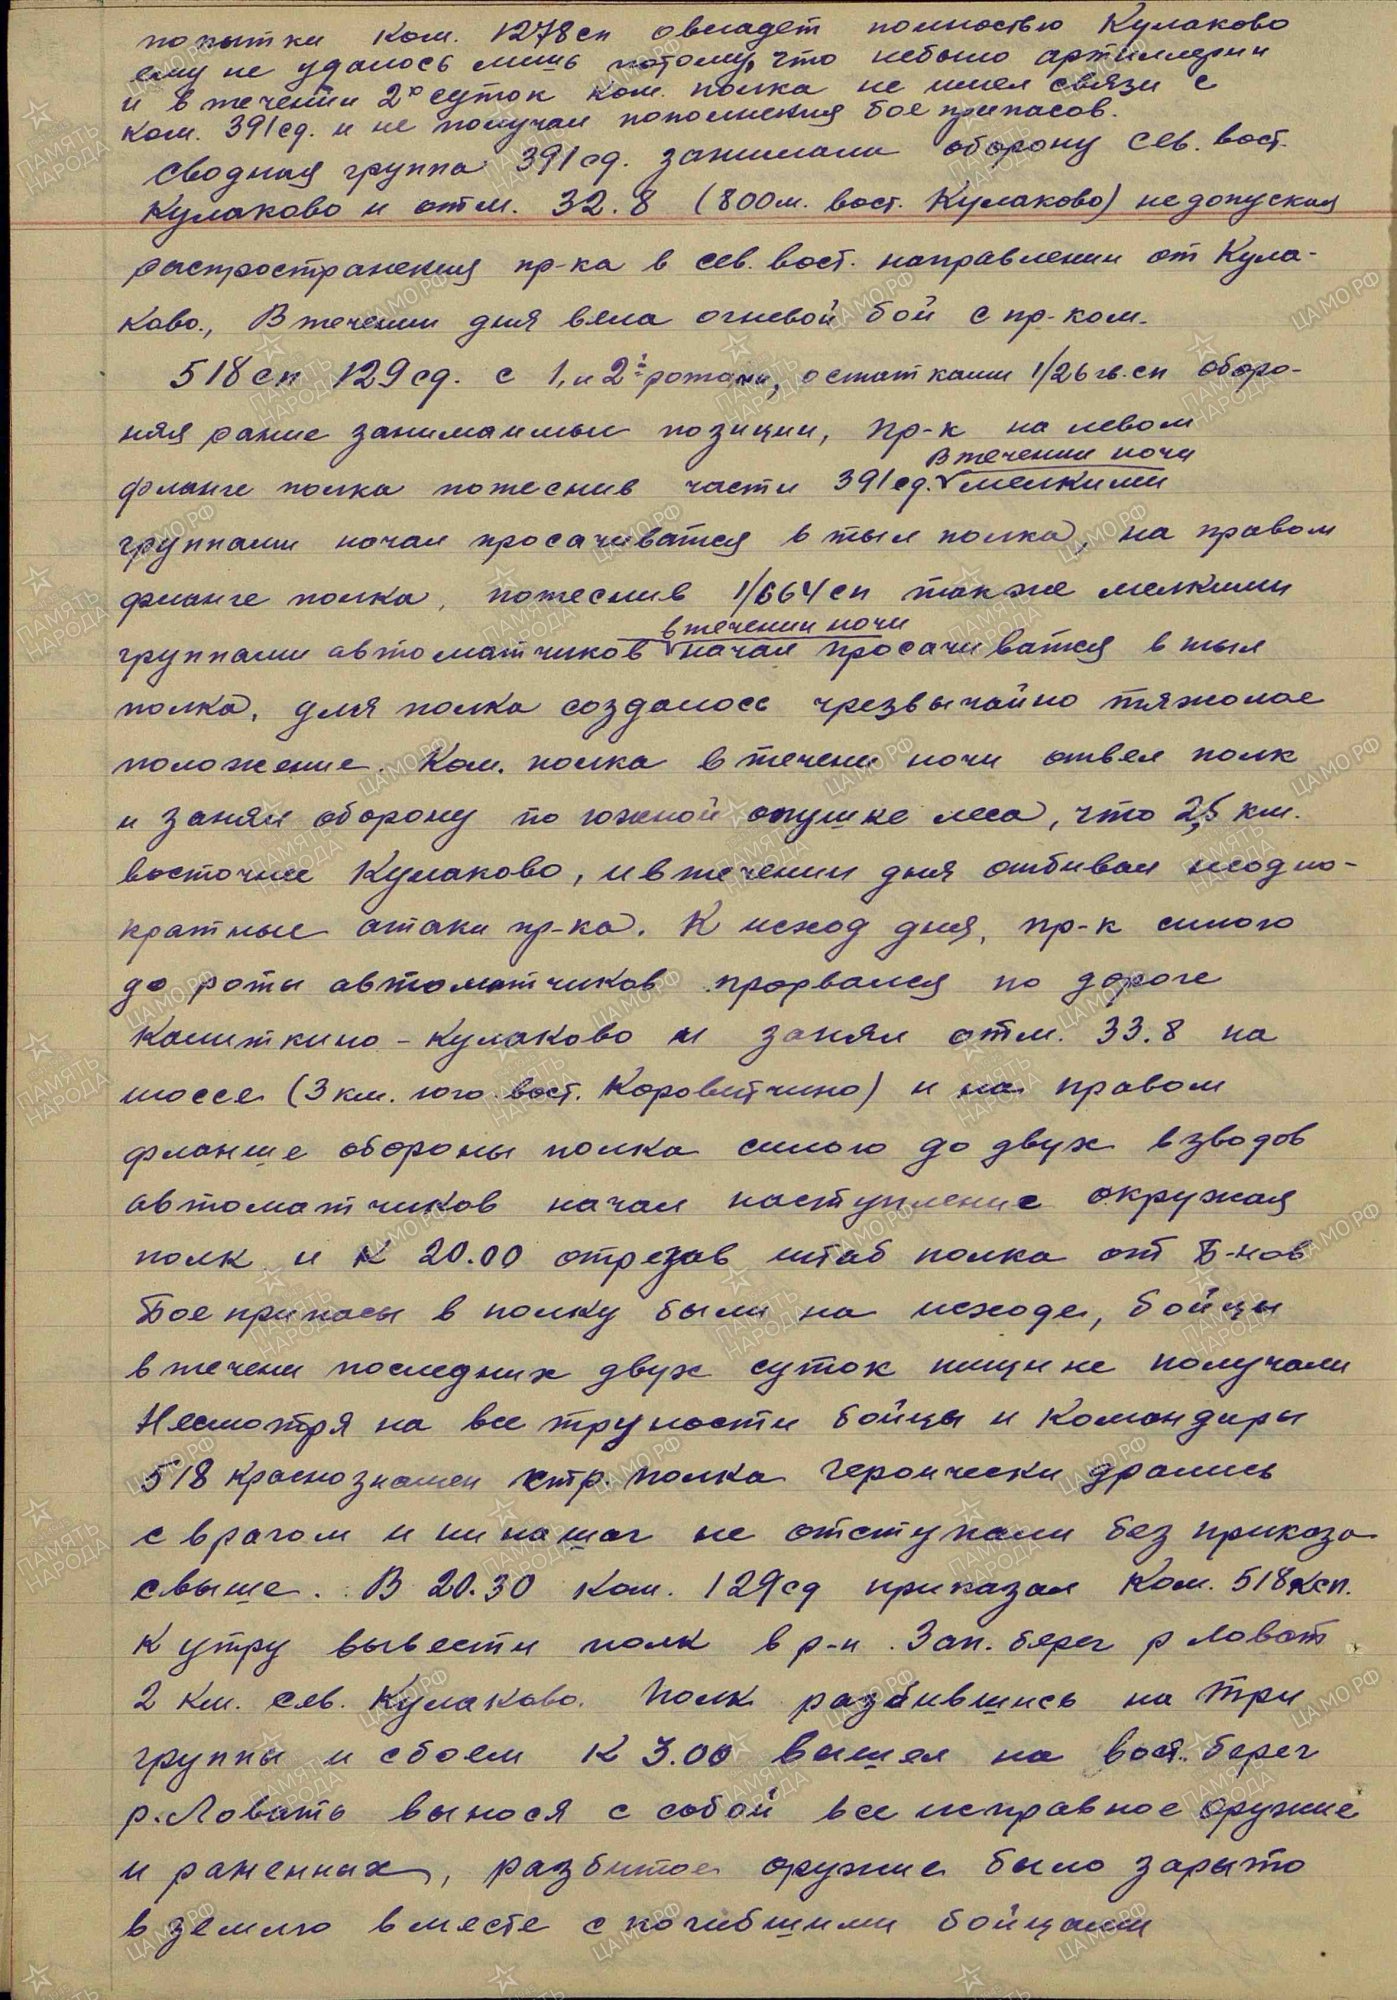 попытки ком. 1278сп овладет полностью Кулаково
ему не удалось лишь потому, что небыло артиллерии
и в течении 2х суток ком. полка не имел связи с
ком. 391сд. и не получал пополнения боеприпасов.
Сводная группа 391сд. занимала оборону сев. вост.
Кулаково и отм. 32.8 (800м. вост. Кулаково) не допуская
распространения пр-ка в сев. вост. направлении от Кула-
ково., В течении дня вела огневой бой с пр-ком.
518сп 129сд. с 1, и 2й ротами, остатками 1/26 гв.сп оборо-
няя рание занимаимые позиции, пр-к на левом
в течении ночи
фланге полка потеснив части 391сд. мелкими
группами начал просачиватся в тыл полка, на правом
фланге полка, потеснив 1/664сп также мелкими
в течении ночи
группами автоматчиков начал просачиватся в тыл
полка, для полка создалось чрезвычайно тяжолое
положение. Ком. полка в течени ночи отвел полк
и занял оборону по южной опушке леса, что 2,5 км.
восточнее Кулаково, и в течении дня отбивал неодно-
кратные атаки пр-ка. К исход дня, пр-к силою
до роты автоматчиков прорвался по дороге
Калиткино - Кулаково и занял отм. 33.8 на
шоссе (3 км. юго. вост. Коровитчино) и на правом
фланше обороны полка силою до двух взводов
автоматчиков начал наступление окружая
полк и к 20.00 отрезав штаб полка от Б-нов
Боеприпасы в полку были на исходе, бойцы
в течени последних двух суток пищи не получали
Несмотря на все труности бойцы и командиры
518 краснознамен стр. полка героически дрались
с врагом и ни на шаг не отступали без приказа
свыше. В 20.30 ком. 129сд приказал ком. 518ксп.
к утру вывести полк в р-н. Зап. берег р Ловат
2 км. сев. Кулаково. Полк разбившись на три
группы и с боем к 3.00 вышел на вост. берег
р. Ловать вынося с собой все исправное оружие
и раненных, разбитое оружие было зарыто
в землю вместе с погибшими бойцами